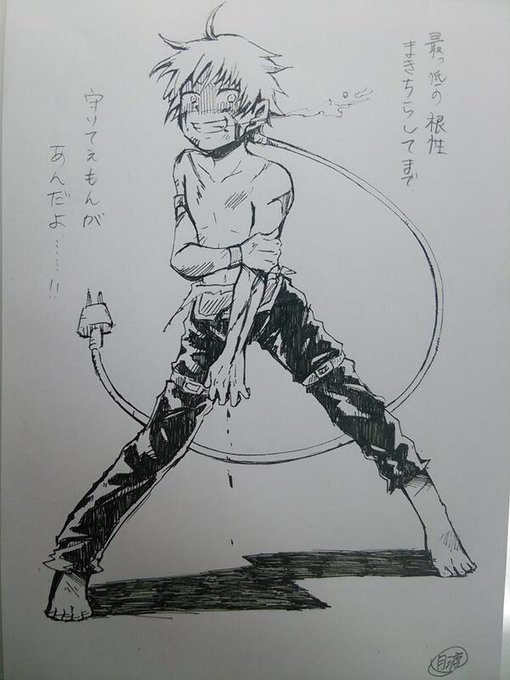 最っ低の根性
まきちらしてまで
守りてえもんが
あんだよ……!!